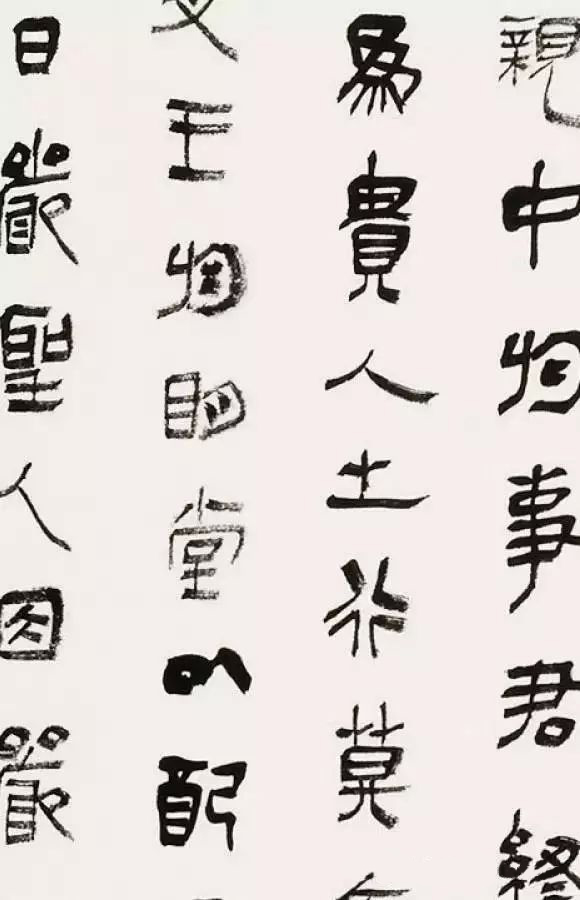 親中於事君終
為貴人之行莫
文王於明堂以配
日嚴聖人因嚴